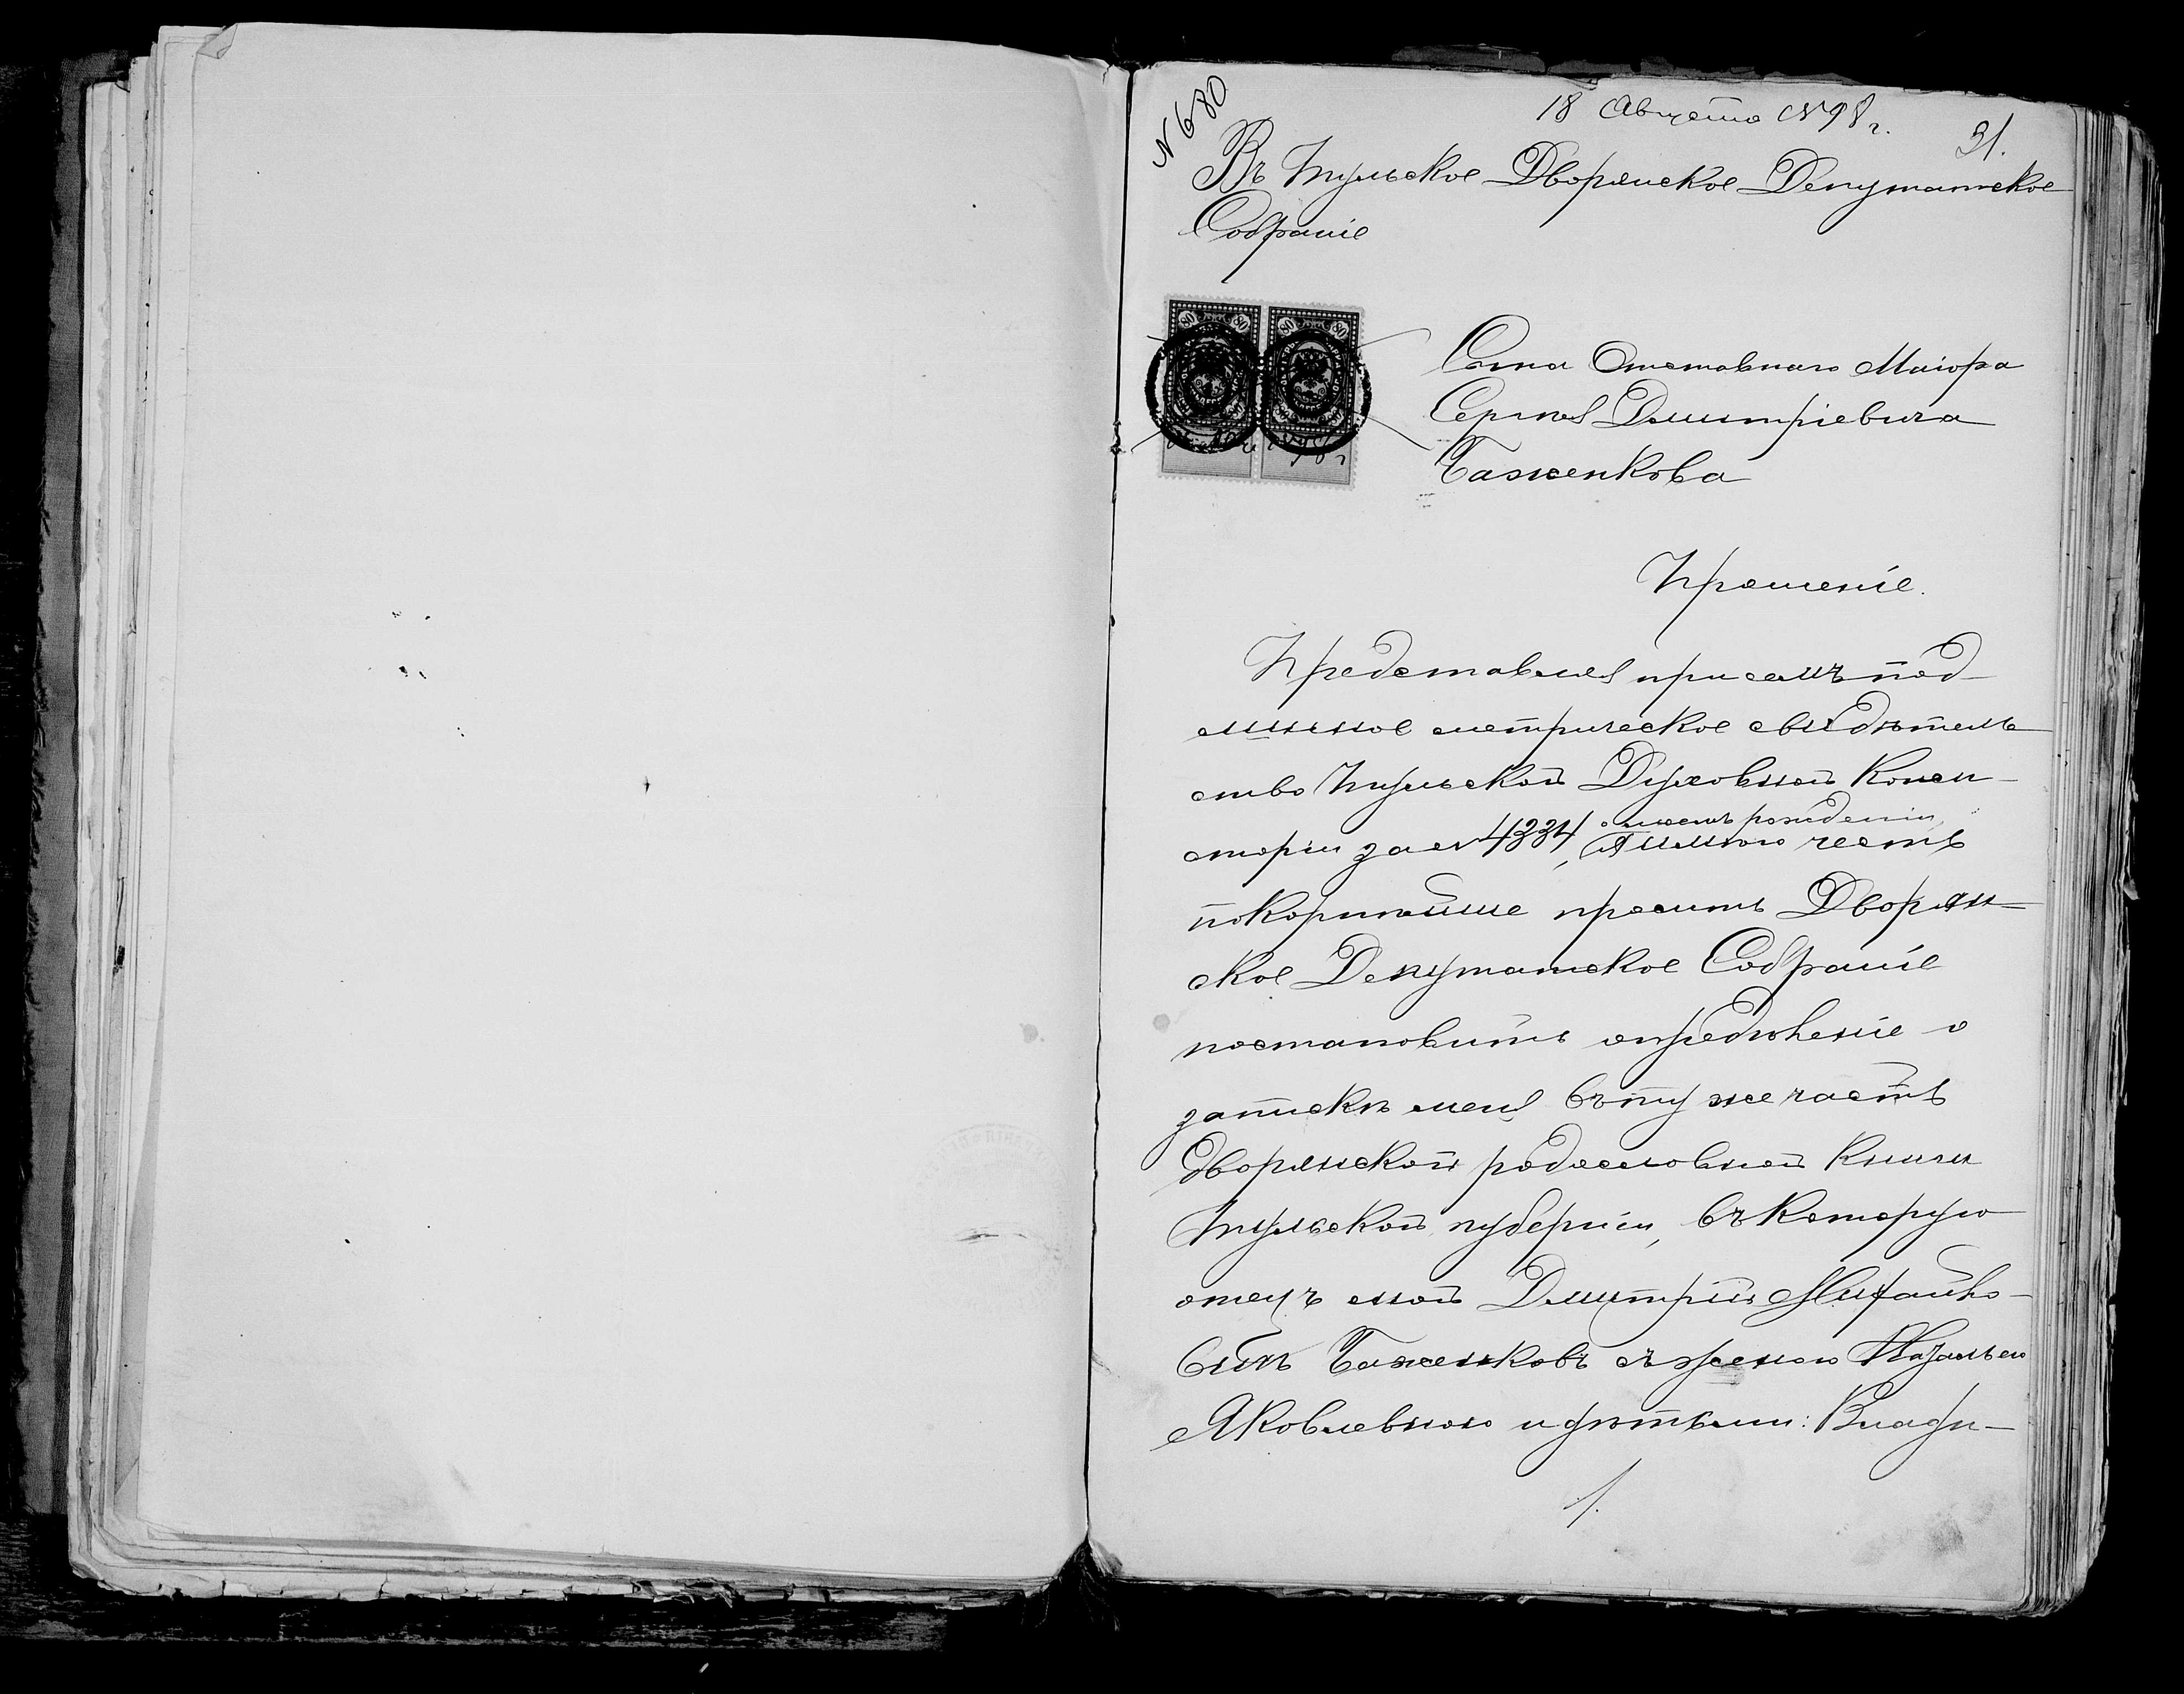 N 680
18 Августа 1898 г.
31.
Въ Тульское Дворянское Депутатское
Собраніе
80 80 80 80
98 г
Сына Отставного Маіора
Сергея Дмитріевича
Баженкова
Прошеніе.
Представляя при семъ под-
линное метрическое свидѣтель
ство Тульской Духовной Конси-
о моемъ рожденіи,
сторіи за N 4334, имѣю честь
покорнѣйше просить Дворян-
ское Депутатское Собраніе
постановить опредѣленіе о
запискѣ меня въ ту же часть
дворянской родословной книги
Тульской губерніи, въ которую
отецъ мой Дмитрій Михайло-
вичъ Баженковъ съ женою
Яковлевною и дѣтьми: Влади-
1.